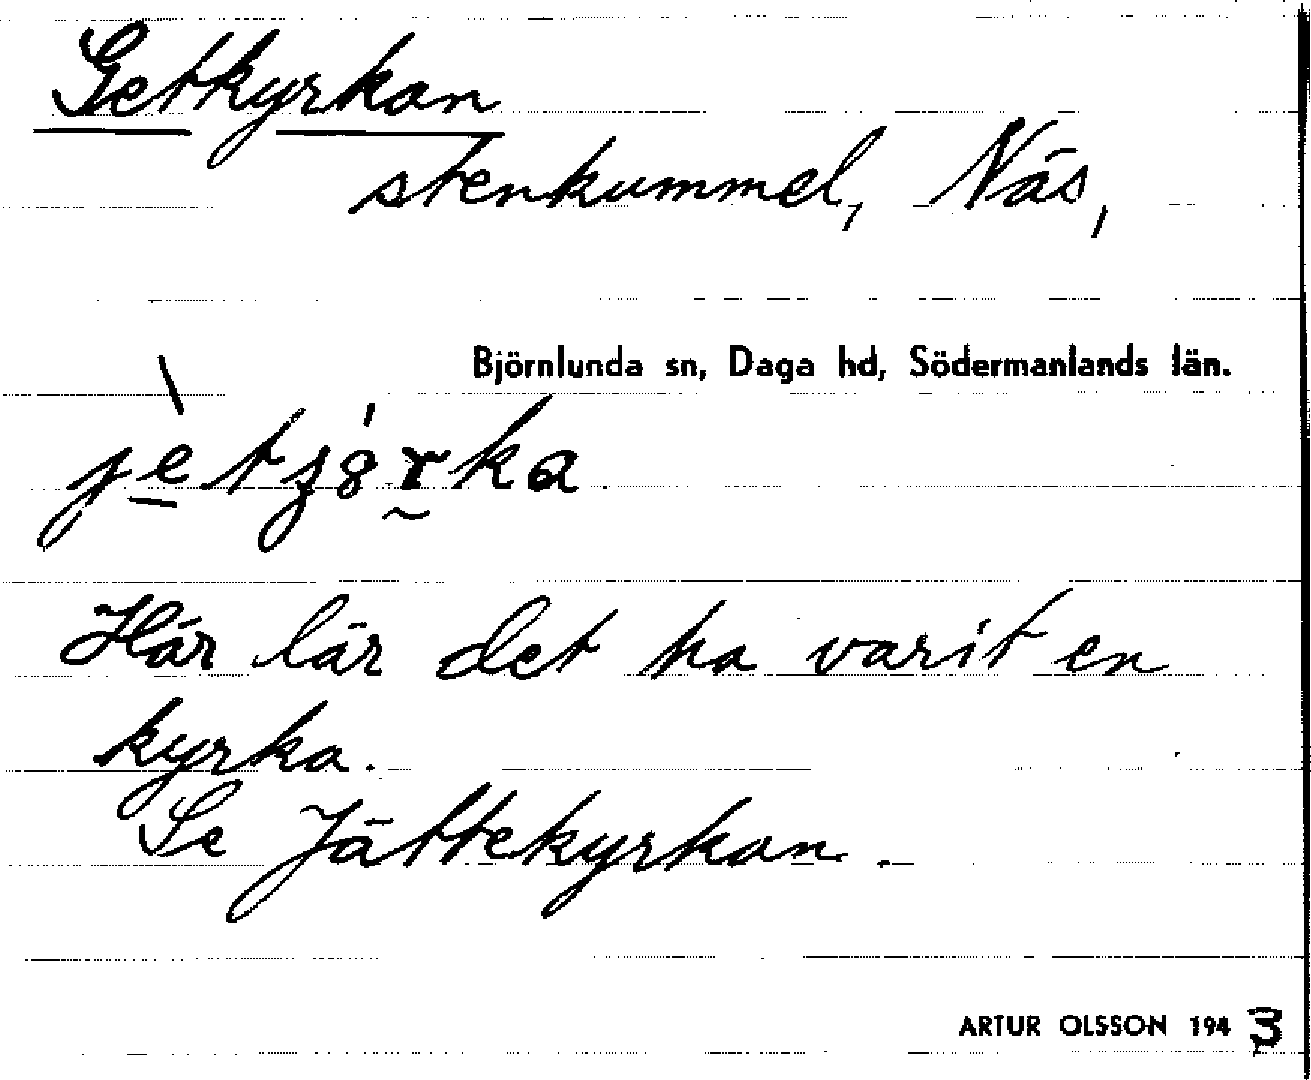 Getkyrkan
stenkummel, Näs,
Björnlunda sn, Daga hd, Södermanlands län.
jètʒ8́rka
Här lär det ha varit en
kyrka.
Se Jättekyrkan.
ARTUR OLSSON 1943